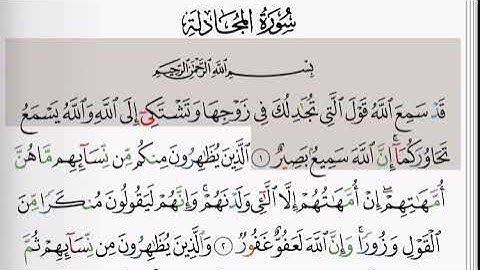 سُورَةُ الْمُجَادلَة
بِسْمِ اللَّهِ الرَّحْمَٰنِ الرَّحِيمِ
قَدْ سَمِعَ اللَّهُ قَوْلَ الَّتِي تُجَادِلُكَ فِي زَوْجِهَا وَتَشْتَكِي إِلَى اللَّهِ وَاللَّهُ يَسْمَعُ
تَحَاوُرَكُمَا ۚ إِنَّ اللَّهَ سَمِيعٌ بَصِيرٌ ١ الَّذِينَ يُظَاهِرُونَ مِنكُم مِّن نِّسَائِهِم مَّا هُنَّ
أُمَّهَاتِهِمْ ۖ إِنْ أُمَّهَاتُهُمْ إِلَّا اللَّائِي وَلَدْنَهُمْ ۚ وَإِنَّهُمْ لَيَقُولُونَ مُنكَرًا مِّنَ
الْقَوْلِ وَزُورًا ۚ وَإِنَّ اللَّهَ لَعَفُوٌّ غَفُورٌ ٢ وَالَّذِينَ يُظَاهِرُونَ مِن نِّسَائِهِمْ ثُمَّ